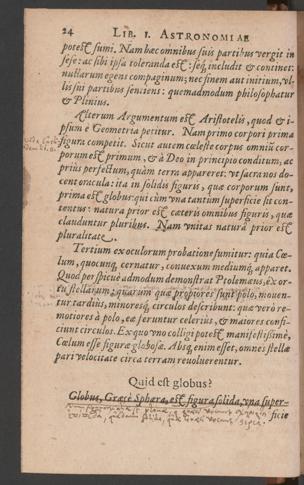 24 LIB. I. ASTRONOMIAE
potest sumi. Nam hæc omnibus suis partibus vergit in
sese: ac sibi ipsa toleranda est: seq́; includit & continet:
nullarum egens compaginum; nec finem aut initium, vl-
lis sui partibus sentiens: quemadmodum philosophatur
& Plinius.
Alterum Argumentum est Aristotelis, quod & i-
psum è Geometria petitur. Nam primo corpori prima
figura competit. Sicut autem cœleste corpus omniũ cor-
porum est primum, & à Deo in principio conditum, ac
prius perfectum, quàm terra appareret: vt sacra nos do-
cent oracula: ita in solidis figuris, quæ corporum sunt,
prima est globus: qui cùm vna tantum superficie sit con-
tentus: natura prior est cæteris omnibus figuris, quæ
clauduntur pluribus. Nam vnitas natura prior est
pluralitate.
Tertium ex oculorum probatione sumitur: quia Cœ-
lum, quocunq́; cernatur, conuexum mediumq́; apparet.
Quod perspicuè admodum demonstrat Ptolemæus, ex or-
tu stellarum: quarum quæ propiores sunt polo, mouen-
tur tardius, minoresq́; circulos describunt: quæ verò re-
motiores à polo, eæ feruntur celerius, & maiores confi-
ciunt circulos. Ex quo vno colligi potest manifestissimè,
Cœlum esse figuræ globosæ. Absq́; enim esset, omnes stellæ
pari velocitate circa terram reuoluerentur.
Quid est globus?
Globus, Græcè Sphæra, est figura solida, vna super-
ficie